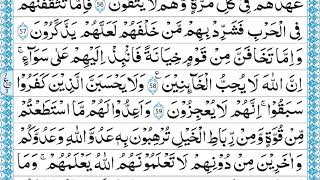 عَهْدَهُمْ فِيْ كُلِّ مَرَّةٍ وَّهُمْ لَا يَتَّقُوْنَ ﴿۵۶﴾ فَاِمَّا تَثْقَفَنَّهُمْ
فِي الْحَرْبِ فَشَرِّدْ بِهِمْ مَّنْ خَلْفَهُمْ لَعَلَّهُمْ يَذَّكَّرُوْنَ ﴿۵۷﴾
وَاِمَّا تَخَافَنَّ مِنْ قَوْمٍ خِيَانَةً فَانْۢبِذْ اِلَيْهِمْ عَلٰى سَوَآءٍ ؕ
اِنَّ اللّٰهَ لَا يُحِبُّ الْخَآئِنِيْنَ ﴿۵۸﴾ وَلَا يَحْسَبَنَّ الَّذِيْنَ كَفَرُوْا
سَبَقُوْا ؕ اِنَّهُمْ لَا يُعْجِزُوْنَ ﴿۵۹﴾ وَاَعِدُّوْا لَهُمْ مَّا اسْتَطَعْتُمْ
مِّنْ قُوَّةٍ وَّمِنْ رِّبَاطِ الْخَيْلِ تُرْهِبُوْنَ بِهٖ عَدُوَّ اللّٰهِ وَعَدُوَّكُمْ
وَاٰخَرِيْنَ مِنْ دُوْنِهِمْ ۚ لَا تَعْلَمُوْنَهُمْ ۚ اَللّٰهُ يَعْلَمُهُمْ ؕ وَمَا